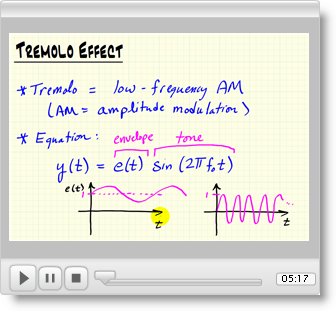 TREMOLO EFFECT
* Tremolo = low-frequency AM
(AM = amplitude modulation)
* Equation: envelope tone
y(t) = e(t) sin (2πf₀t)
e(t)
1 1
t t
05:17